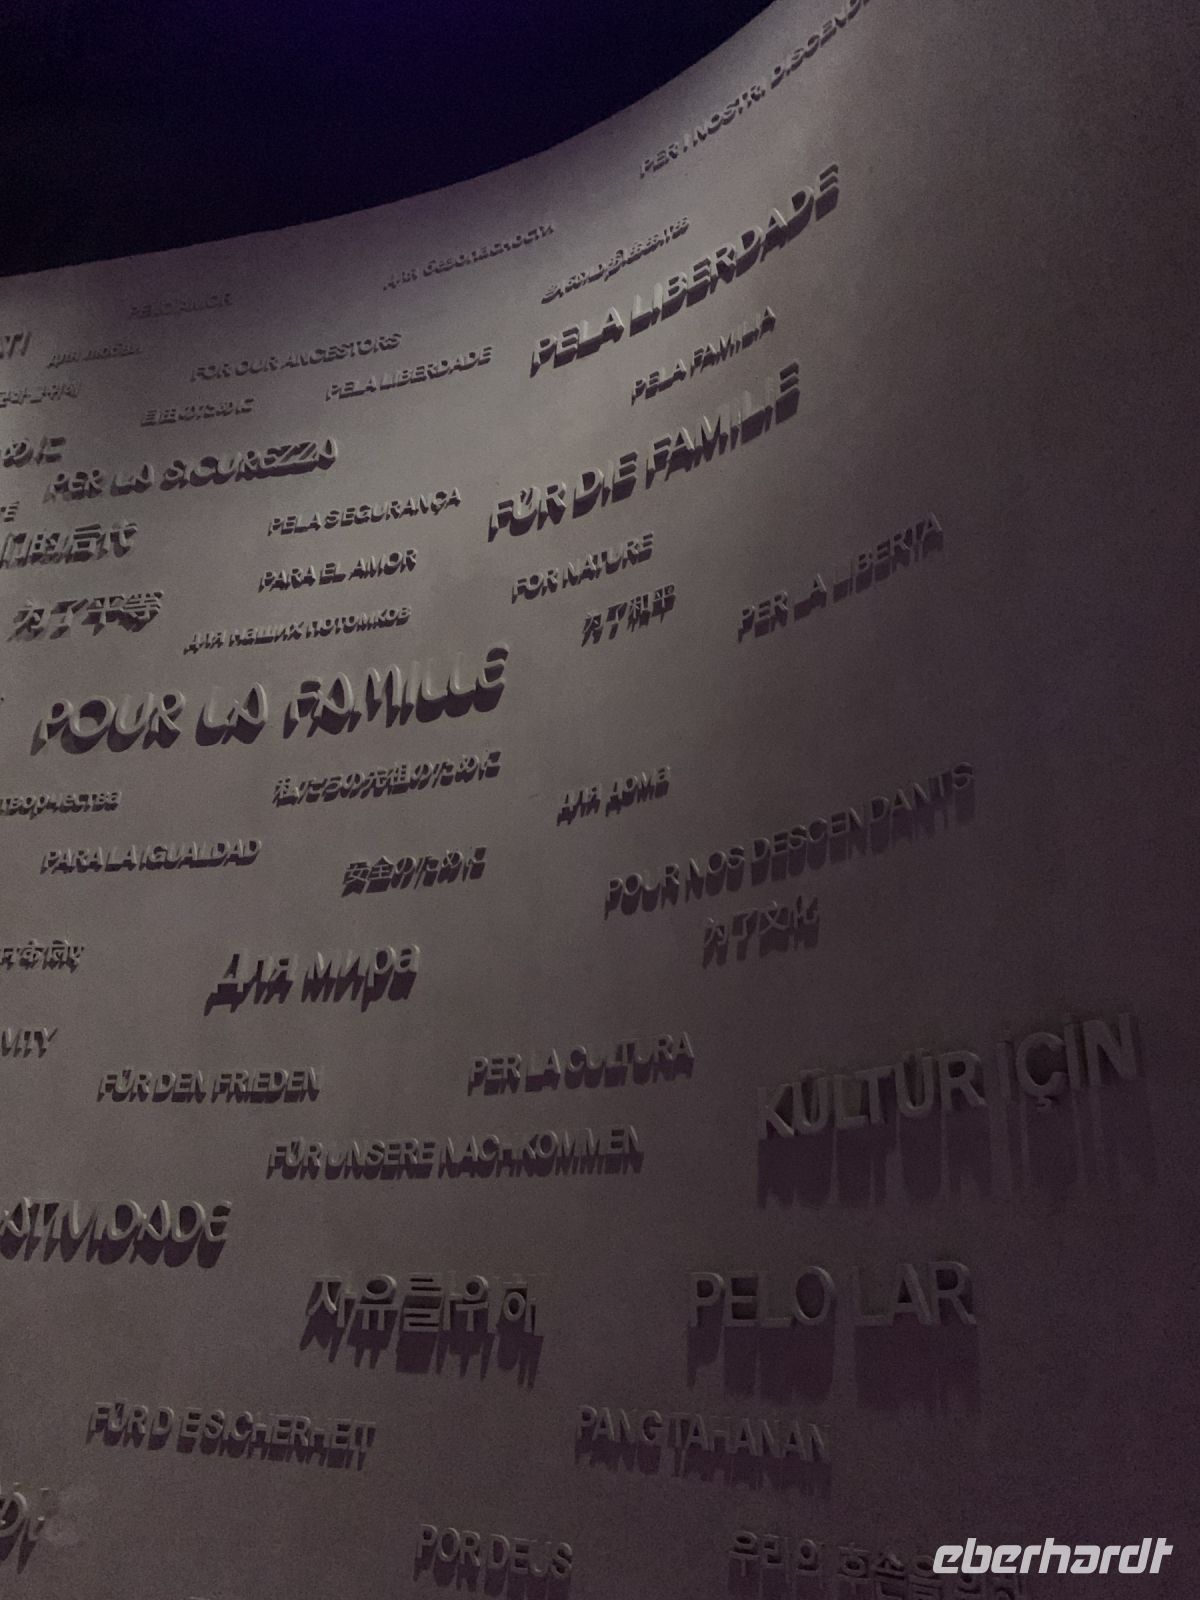 PER I NOSTRI DISCEND
PELA LIBERDADE
для безопасности
PELO AMOR
для любви
FOR OUR ANCESTORS
PELA LIBERDADE
PELA FAMÍLIA
自由のために
めに
PER LA SICUREZZA
PELA SEGURANÇA
FÜR DIE FAMILIE
们的后代
PARA EL AMOR
FOR NATURE
为了平等
для наших потомков
为了和平
PER LA LIBERTÀ
POUR LA FAMILLE
творчества
私たちの先祖のために
для дома
PARA LA IGUALDAD
安全のために
POUR NOS DESCENDANTS
为了文化
के लिए
для мира
VITY
FÜR DEN FRIEDEN
PER LA CULTURA
KÜLTÜR İÇİN
FÜR UNSERE NACHKOMMEN
ATIVIDADE
자유를 위해
PELO LAR
FÜR DIE SICHERHEIT
PANG TAHANAN
POR DEUS
우리의 후손을 위해
eberhardt